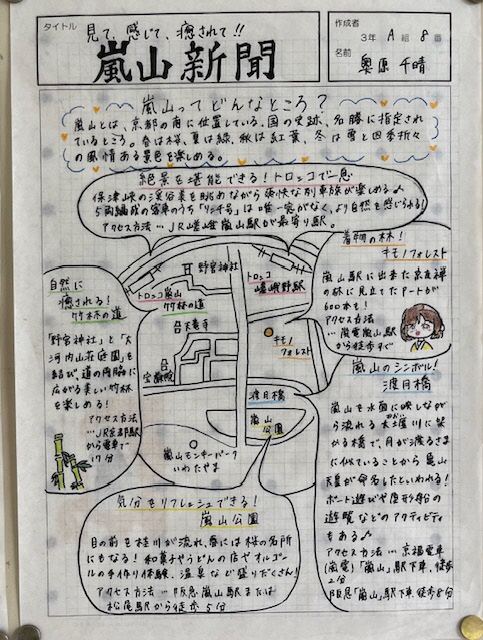 タイトル
見て、感じて、癒されて!!
嵐山新聞
作成者
3年 A組 8番
名前
奥原 千晴
嵐山ってどんなところ?
嵐山とは、京都の南に位置している。国の史跡、名勝に指定され
ているところ。春は桜、夏は緑、秋は紅葉、冬は雪と四季折々
の風情ある景色を楽しめる。
絶景を堪能できる!トロッコで一息
保津峡の渓谷美を眺めながら爽快な列車旅が楽しめる♪
5両編成の客車のうち「リッチ号」は唯一窓がなく、より自然を感じられる!
アクセス方法…JR嵯峨嵐山駅が最寄り駅。
着物の林!
キモノフォレスト
嵐山駅に出来た京友禅
の林に見立てたアートが
600本も!
アクセス方法
…嵐電嵐山駅
から徒歩すぐ
自然に
癒される!
竹林の道
「野宮神社」と「大
河内山荘庭園」を
結び、道の両脇に
広がる美しい竹林
を楽しめる!
アクセス方法
…JR京都駅
から電車で
17分
野宮神社
トロッコ嵐山
竹林の道
トロッコ
嵯峨野駅
天龍寺
キモノ
フォレスト
宝厳院
渡月橋
嵐山
公園
嵐山モンキーパーク
いわたやま
嵐山のシンボル!
渡月橋
嵐山を水面に映しなが
ら流れる大堰川に架
かる橋で、月が渡るさま
に似ていることから亀山
天皇が命名したといわれる!
ボート遊びや屋形船の
遊覧などのアクティビティ
もある♪
アクセス方法…京福電車
(嵐電)「嵐山」駅下車、徒歩
2分
阪急「嵐山」駅下車、徒歩8分
気分をリフレッシュできる!
嵐山公園
目の前を桂川が流れ、春には桜の名所
にもなる!和菓子やうどんの店やオルゴー
ルの手作り体験、温泉など盛りだくさん!
アクセス方法…阪急嵐山駅または
松尾駅から徒歩5分